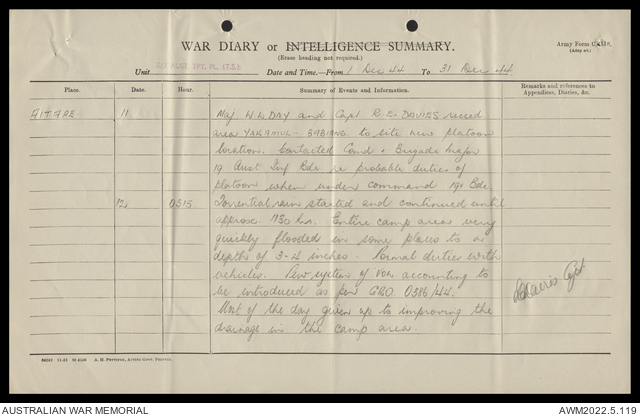 WAR DIARY or INTELLIGENCE SUMMARY.
(Erase heading not required.)
Army Form C.2118.
Unit AUST. TPT. PL. Date and Time.—From 1 Dec 44 To 31 Dec 44
Place Date. Hour. Summary of Events and Information. Remarks and references to
Appendices, Diaries, &c.
AITAPE 11 Maj W.L. DAY and Capt R.E. DAVIES recced
area YAKAMUL - BABIANG to site new platoon
location. Contacted Comd & Brigade Major
19 Aust Inf Bde re probable duties of
platoon when under command 19 Bde.
12 0515 Torrential rain started and continued until
approx. 730 hrs. Entire camp area very
quickly flooded in some places to a
depth of 3-4 inches. Normal duties with
vehicles. New system of POL accounting to
be introduced as per GRO 0386/44.
Most of the day given up to improving the
drainage in the camp area.
Capt
AUSTRALIAN WAR MEMORIAL
AWM2022.5.119